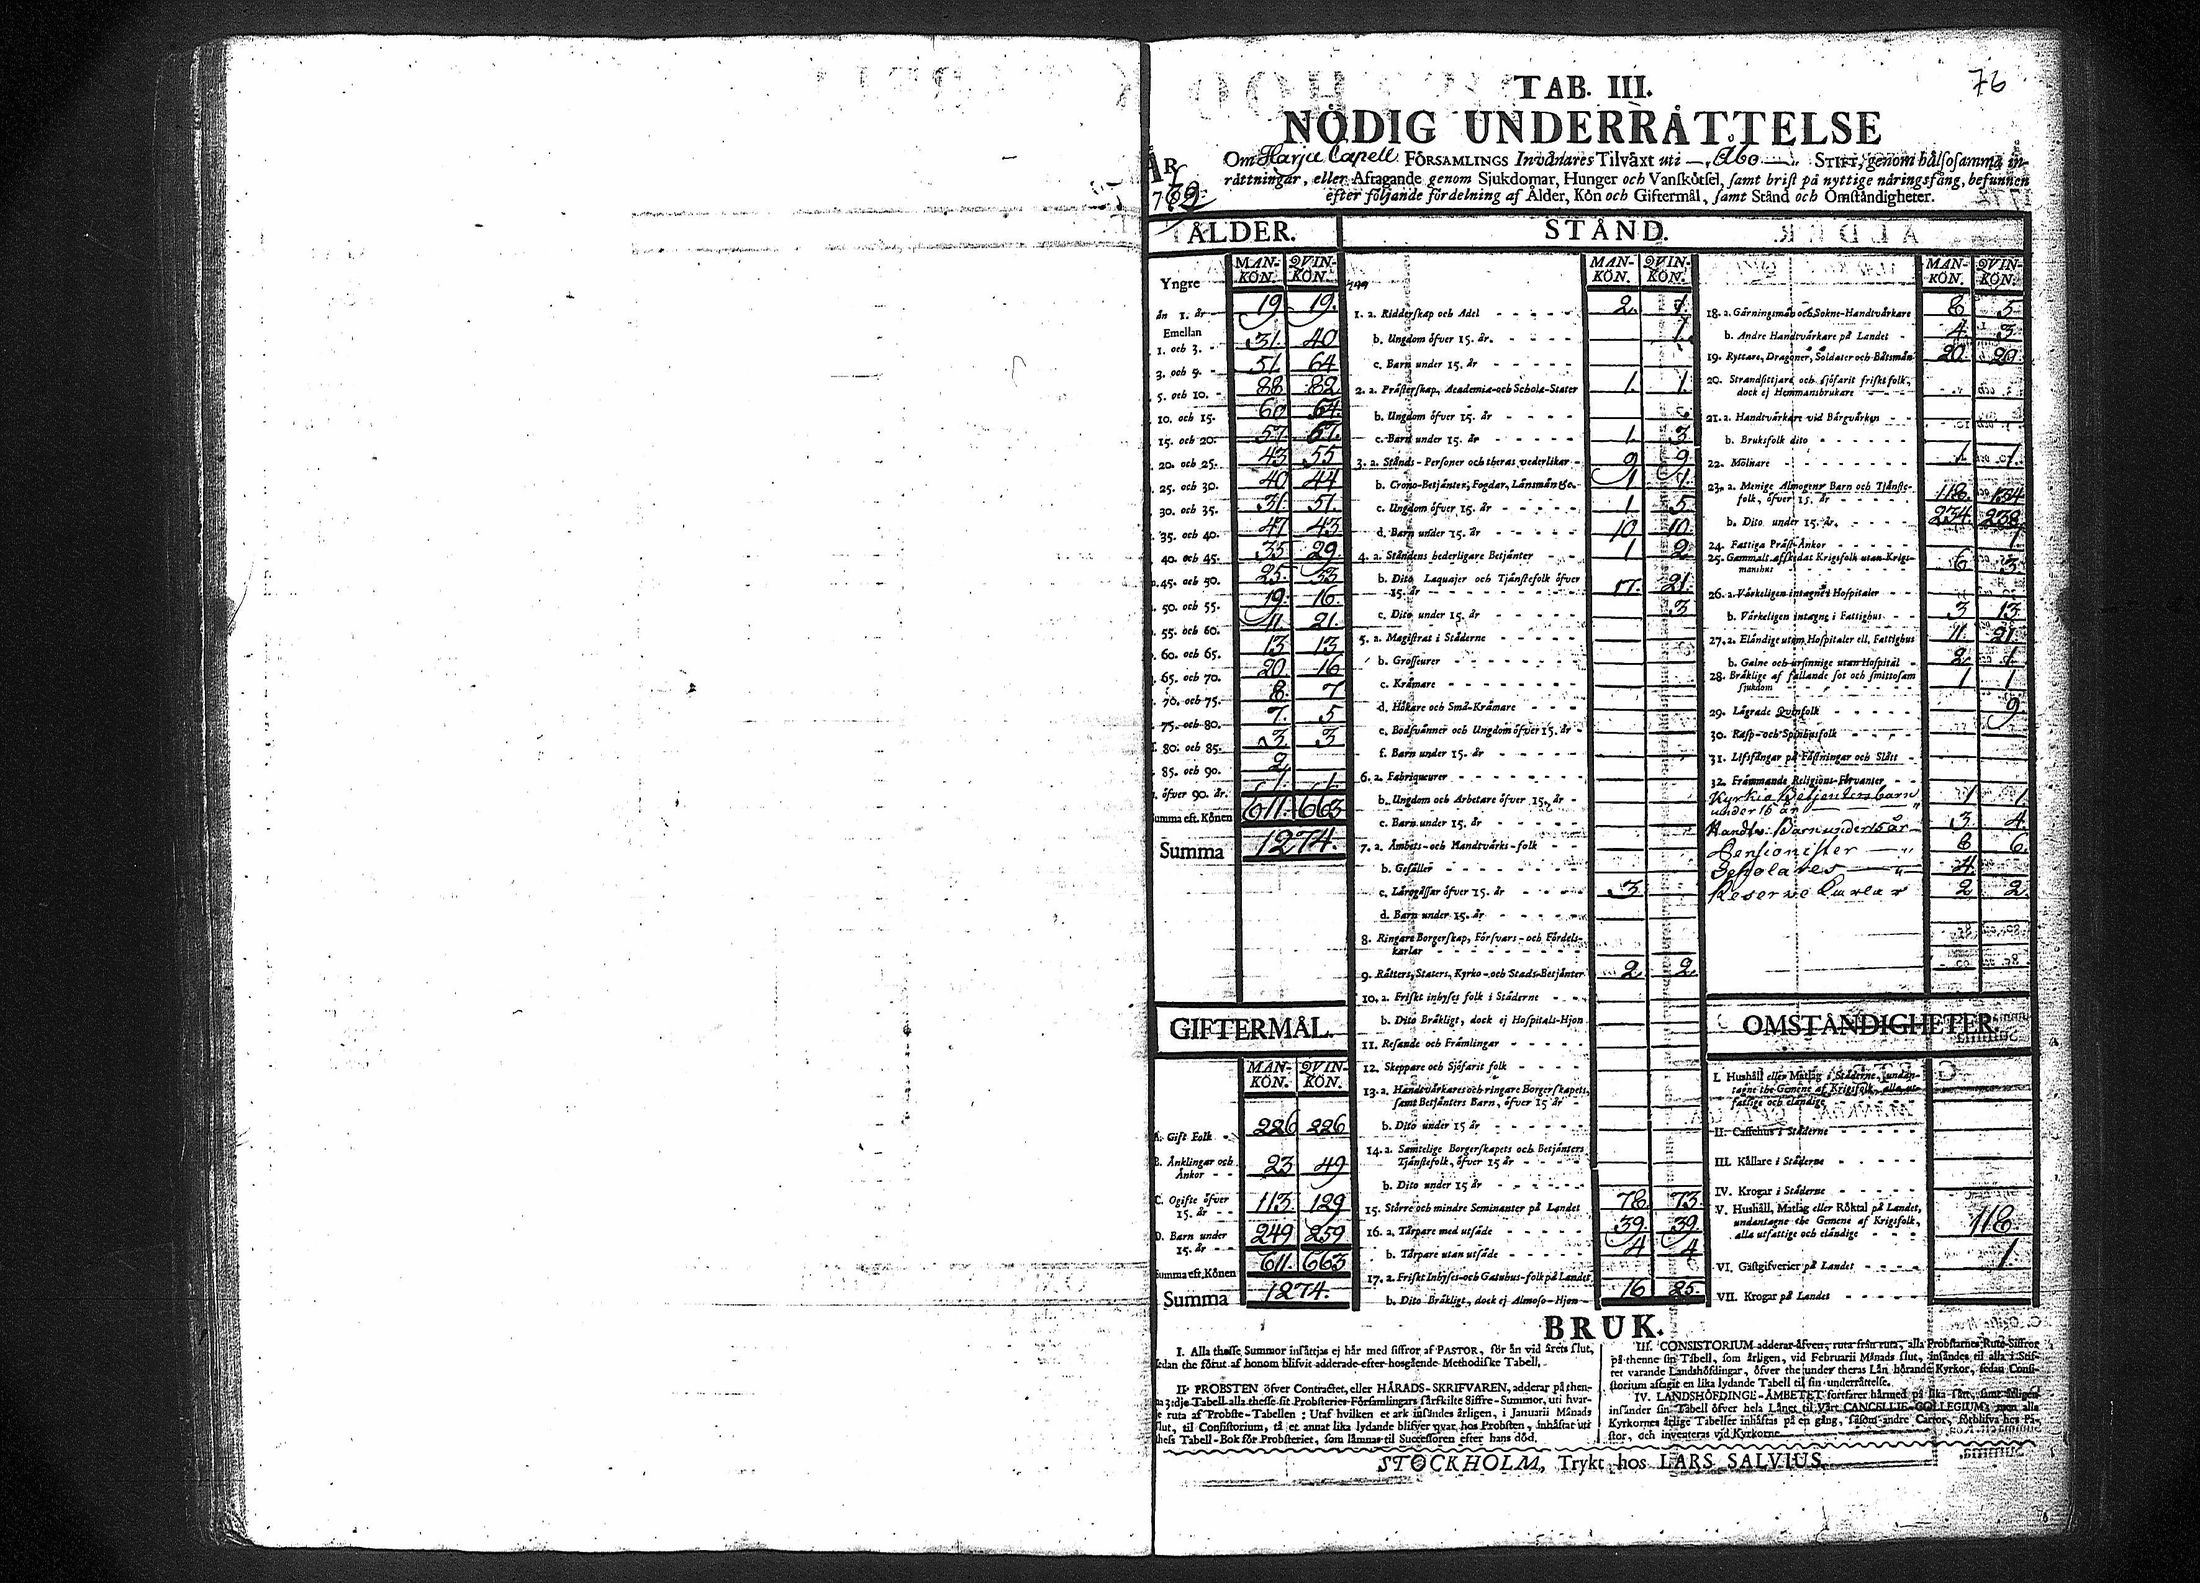 76
TAB. III.
NÖDIG UNDERRÅTTELSE
ÅR
Om Harju Capell FÖRSAMLINGS Invånares Tilväxt uti — Åbo — STIFT, genom hälsosamma in-
rättningar, eller Aftagande genom Sjukdomar, Hunger och Vanskötsel, samt brist på nyttige näringsfång, befunnen
efter följande fördelning af Ålder, Kön och Giftermål, samt Stånd och Omständigheter.
ÅLDER.
MAN-KÖN. QVIN-KÖN.
Yngre
än 1. år 19 19.
Emellan
1. och 3. 31. 40
3. och 5. 51. 64
5. och 10. 88 82
10. och 15. 60 54.
15. och 20. 57 67.
20. och 25. 43 55
25. och 30. 40 44
30. och 35. 31. 51.
35. och 40. 47 43
40. och 45. 35 29
45. och 50. 25. 33
50. och 55. 19. 16
55. och 60. 11. 21.
60. och 65. 13 13
65. och 70. 20 16
70. och 75. 8. 7
75. och 80. 7. 5
80. och 85. 3. 3
85. och 90. 2
öfver 90. år. 1. 1.
Summa eft. Könen 611. 663
Summa 1274.
GIFTERMÅL.
MAN-KÖN. QVIN-KÖN.
A. Gift Folk 226 226
B. Änklingar och Änkor 23 49
C. Ogifte öfver 15. år 113. 129
D. Barn under 15. år 249 259
Summa eft. Könen 611. 663
Summa 1274.
STÅND.
MAN-KÖN. QVIN-KÖN.
1. a. Ridderskap och Adel 2. 1.
b. Ungdom öfver 15. år. 1.
c. Barn under 15. år
2. a. Prästerskap, Academia-och Schola-Stater 1. 1.
b. Ungdom öfver 15. år
c. Barn under 15. år 1. 3
3. a. Stånds-Personer och theras vederlikar 9 9
b. Crono-Betjänter, Fogdar, Länsmän &c. 1 1.
c. Ungdom öfver 15. år 1 5
d. Barn under 15. år 10 10.
4. a. Ståndens hederligare Betjänter 1 2
b. Dito Laquajer och Tjänstefolk öfver
15. år 17. 21.
c. Dito under 15. år 3
5. a. Magistrat i Städerne
b. Grosseurer
c. Krämare
d. Hökare och Små-Krämare
e. Bodsvänner och Ungdom öfver 15. år
f. Barn under 15. år
6. a. Fabriqueurer
b. Ungdom och Arbetare öfver 15. år
c. Barn under 15. år
7. a. Ämbets-och Handtvärks-folk
b. Gesäller
c. Lärogåssar öfver 15. år 3
d. Barn under 15. år
8. Ringare Borgerskap, Försvars-och Fördels-
karlar
9. Rätters, Staters, Kyrko-och Stads-Betjänter 2 2
10. a. Friskt inhyses folk i Städerne
b. Dito Bräkligt, dock ej Hospitals-Hjon
11. Resande och Främlingar
12. Skeppare och Sjöfarit folk
13. a. Handtvärkares och ringare Borgerskapets,
samt Betjänters Barn, öfver 15 år
b. Dito under 15 år
14. a. Samtelige Borgerskapets och Betjänters
Tjänstefolk, öfver 15 år
b. Dito under 15 år
15. Större och mindre Seminanter på Landet 78 73
16. a. Tårpare med utsäde 39. 39.
b. Tårpare utan utsäde 4 4
17. a. Friskt Inhyses-och Gatuhus-folk på Landet
b. Dito Bräkligt, dock ej Almoso-Hjon 16 25.
MAN-KÖN. QVIN-KÖN.
18. a. Gärningsmän och Sokne-Handtvärkare 8 5
b. Andre Handtvärkare på Landet 4. 3
19. Ryttare, Dragoner, Soldater och Båtsmän 20. 20.
20. Strandsittjare och sjöfarit friskt folk,
dock ej Hemmansbrukare
21. a. Handtvärkare vid Bärgvärken
b. Bruksfolk dito
22. Mölnare 1. 1.
23. a. Menige Almogens Barn och Tjänste-
folk, öfver 15. år 118. 134
b. Dito under 15. år. 234. 238
24. Fattiga Präst-Änkor 1
25. Gammalt afskedat Krigsfolk utan Krigs-
manshus 6 3.
26. a. Värkeligen intagne i Hospitaler
b. Värkeligen intagne i Fattighus 3 13
27. a. Eländige utom Hospitaler ell. Fattighus 11. 21.
b. Galne och ursinnige utan Hospital 2. 1.
28. Bräklige af fallande sot och smittosam
sjukdom 1 1
29. Lägrade Qvinfolk 9
30. Rasp-och Spinhusfolk
31. Lifsfångar på Fästningar och Slått
32. Främmande Religions-Förvanter
Kyrkio Betjentersbarn
under 15 år 1 1
Handtv. Barn under 15 år 3 4.
Pensionister 8 6.
Scholares 4
Reserve Carlar 2 2
OMSTÄNDIGHETER.
I. Hushåll eller Matlag i Städerne, undan-
tagne the Gemene af Krigsfolk, alla ut-
fattige och eländige
II. Caffehus i Städerne
III. Källare i Städerne
IV. Krogar i Städerne
V. Hushåll, Matlag eller Röktal på Landet,
undantagne the Gemene af Krigsfolk,
alla utfattige och eländige 118.
VI. Gästgifverier på Landet 1.
VII. Krogar på Landet
BRUK.
I. Alla thesse Summor insättjas ej här med siffror af PASTOR, för än vid årets slut,
sedan the förut af honom blifvit adderade efter hosgående Methodiske Tabell.
II. PROBSTEN öfver Contractet, eller HÄRADS-SKRIFVAREN, adderar på then-
na 3:dje Tabell alla thesse sit Probsteries Församlingars särskilte Siffre-Summor, uti hvar-
je ruta af Probste-Tabellen: Utaf hvilken et ark insändes årligen, i Januarii Månads
slut, til Consistorium, tå et annat lika lydande blifver qvar hos Probsten, inhäftat uti
thess Tabell-Bok för Probsteriet, som lämnas til Successoren efter hans död.
III. CONSISTORIUM adderar äfven, ruta från ruta, alla Probstarnes Rute-Siffror
på thenne sin Tabell, som årligen, vid Februarii Månads slut, insändes til alla i Stif-
tet varande Landshöfdingar, öfver the under theras Län hörande Kyrkor, sedan Consi-
storium aftagit en lika lydande Tabell til sin underrättelse.
IV. LANDSHÖFDINGE-ÄMBETET fortfarer härmed på lika sätt, samt årligen
insänder sin Tabell öfver hela Länet til Vårt CANCELLIE-COLLEGIUM; men alla
Kyrkornes årlige Tabeller inhäftas på en gång, såsom andre Cartor, förblifva hos Pa-
stor, och inventeras vid Kyrkorne.
STOCKHOLM, Trykt hos LARS SALVIUS.